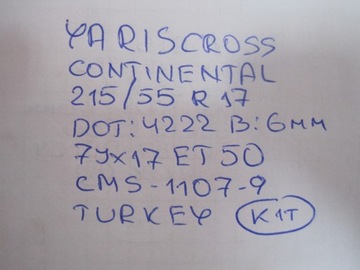 YARISCROSS
CONTINENTAL
215/55 R 17
DOT: 4222 B: 6мм
7Jx17 ET 50
CMS-1107-9
TURKEY KIT